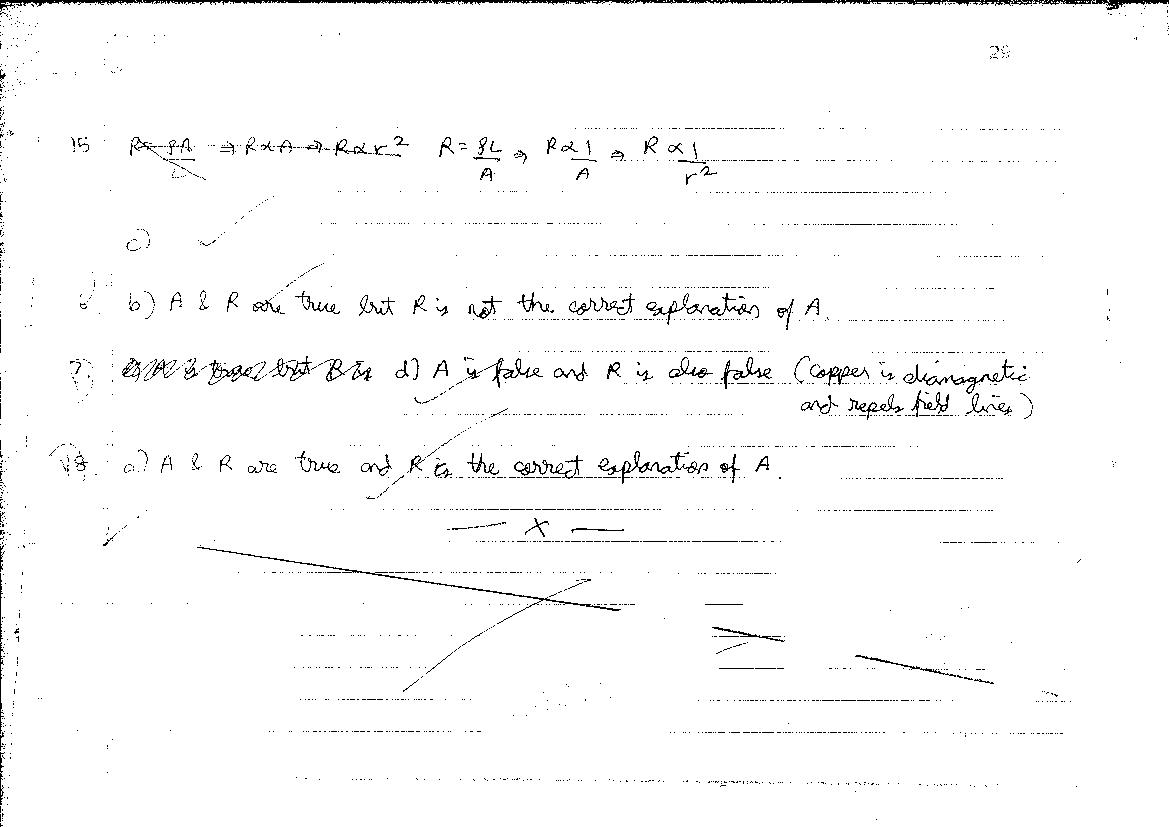 29
15 R = ρA/L ⇒ R ∝ A ⇒ R ∝ r² R = ρL/A ⇒ R ∝ 1/A ⇒ R ∝ 1/r²
c)
b) A & R are true but R is not the correct explanation of A.
d) A is false and R is also false (copper is diamagnetic
and repels field lines)
18. a) A & R are true and R is the correct explanation of A.
— X —